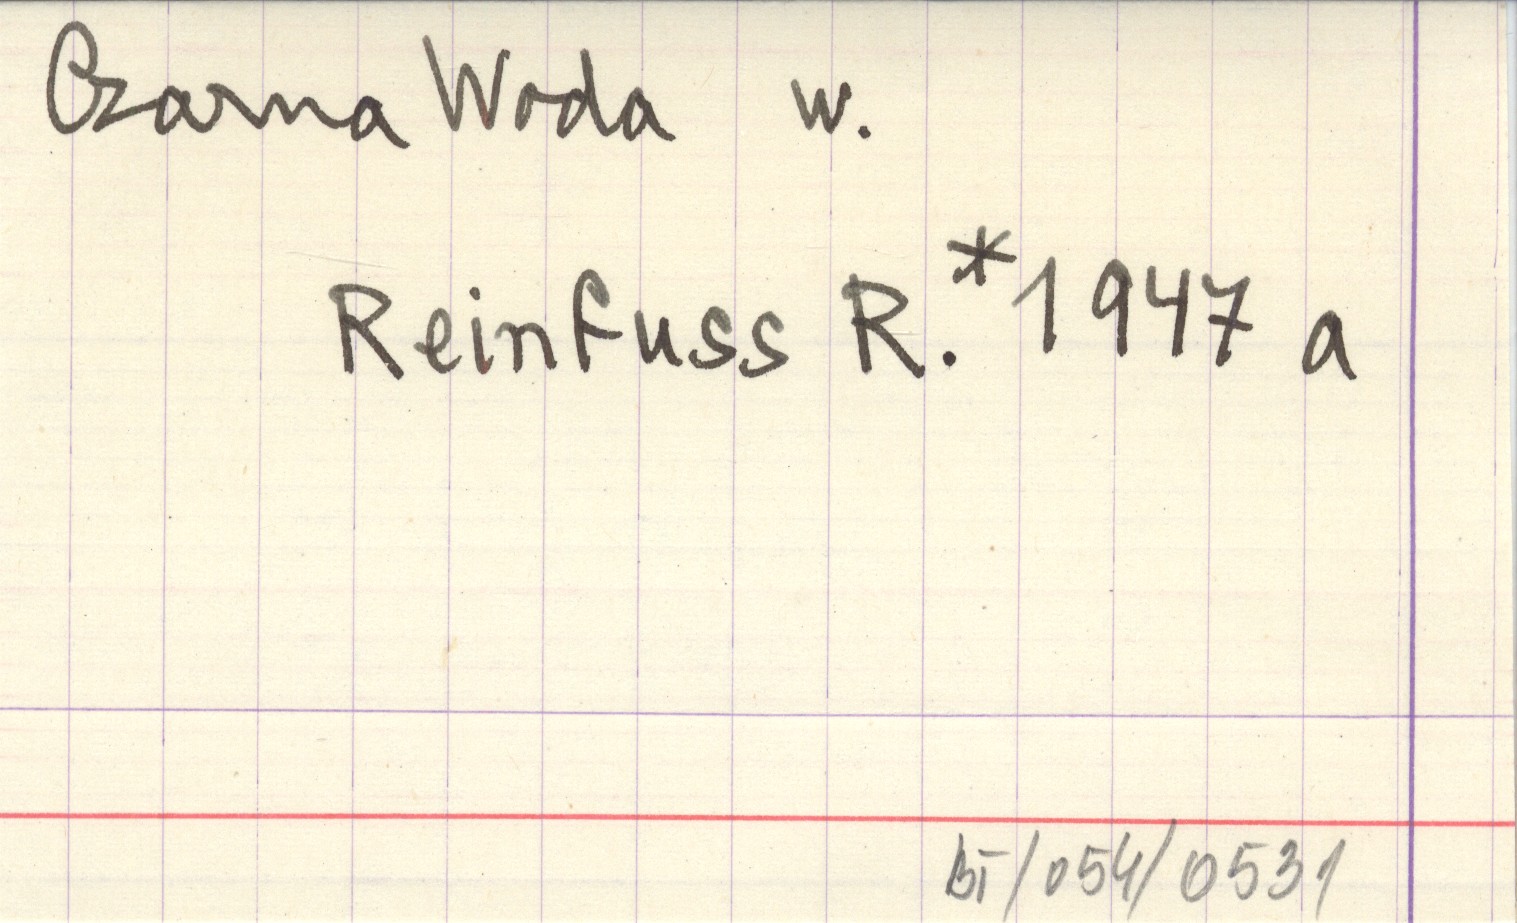 Czarna Woda w.
Reinfuss R.* 1947 a
bī/054/0531